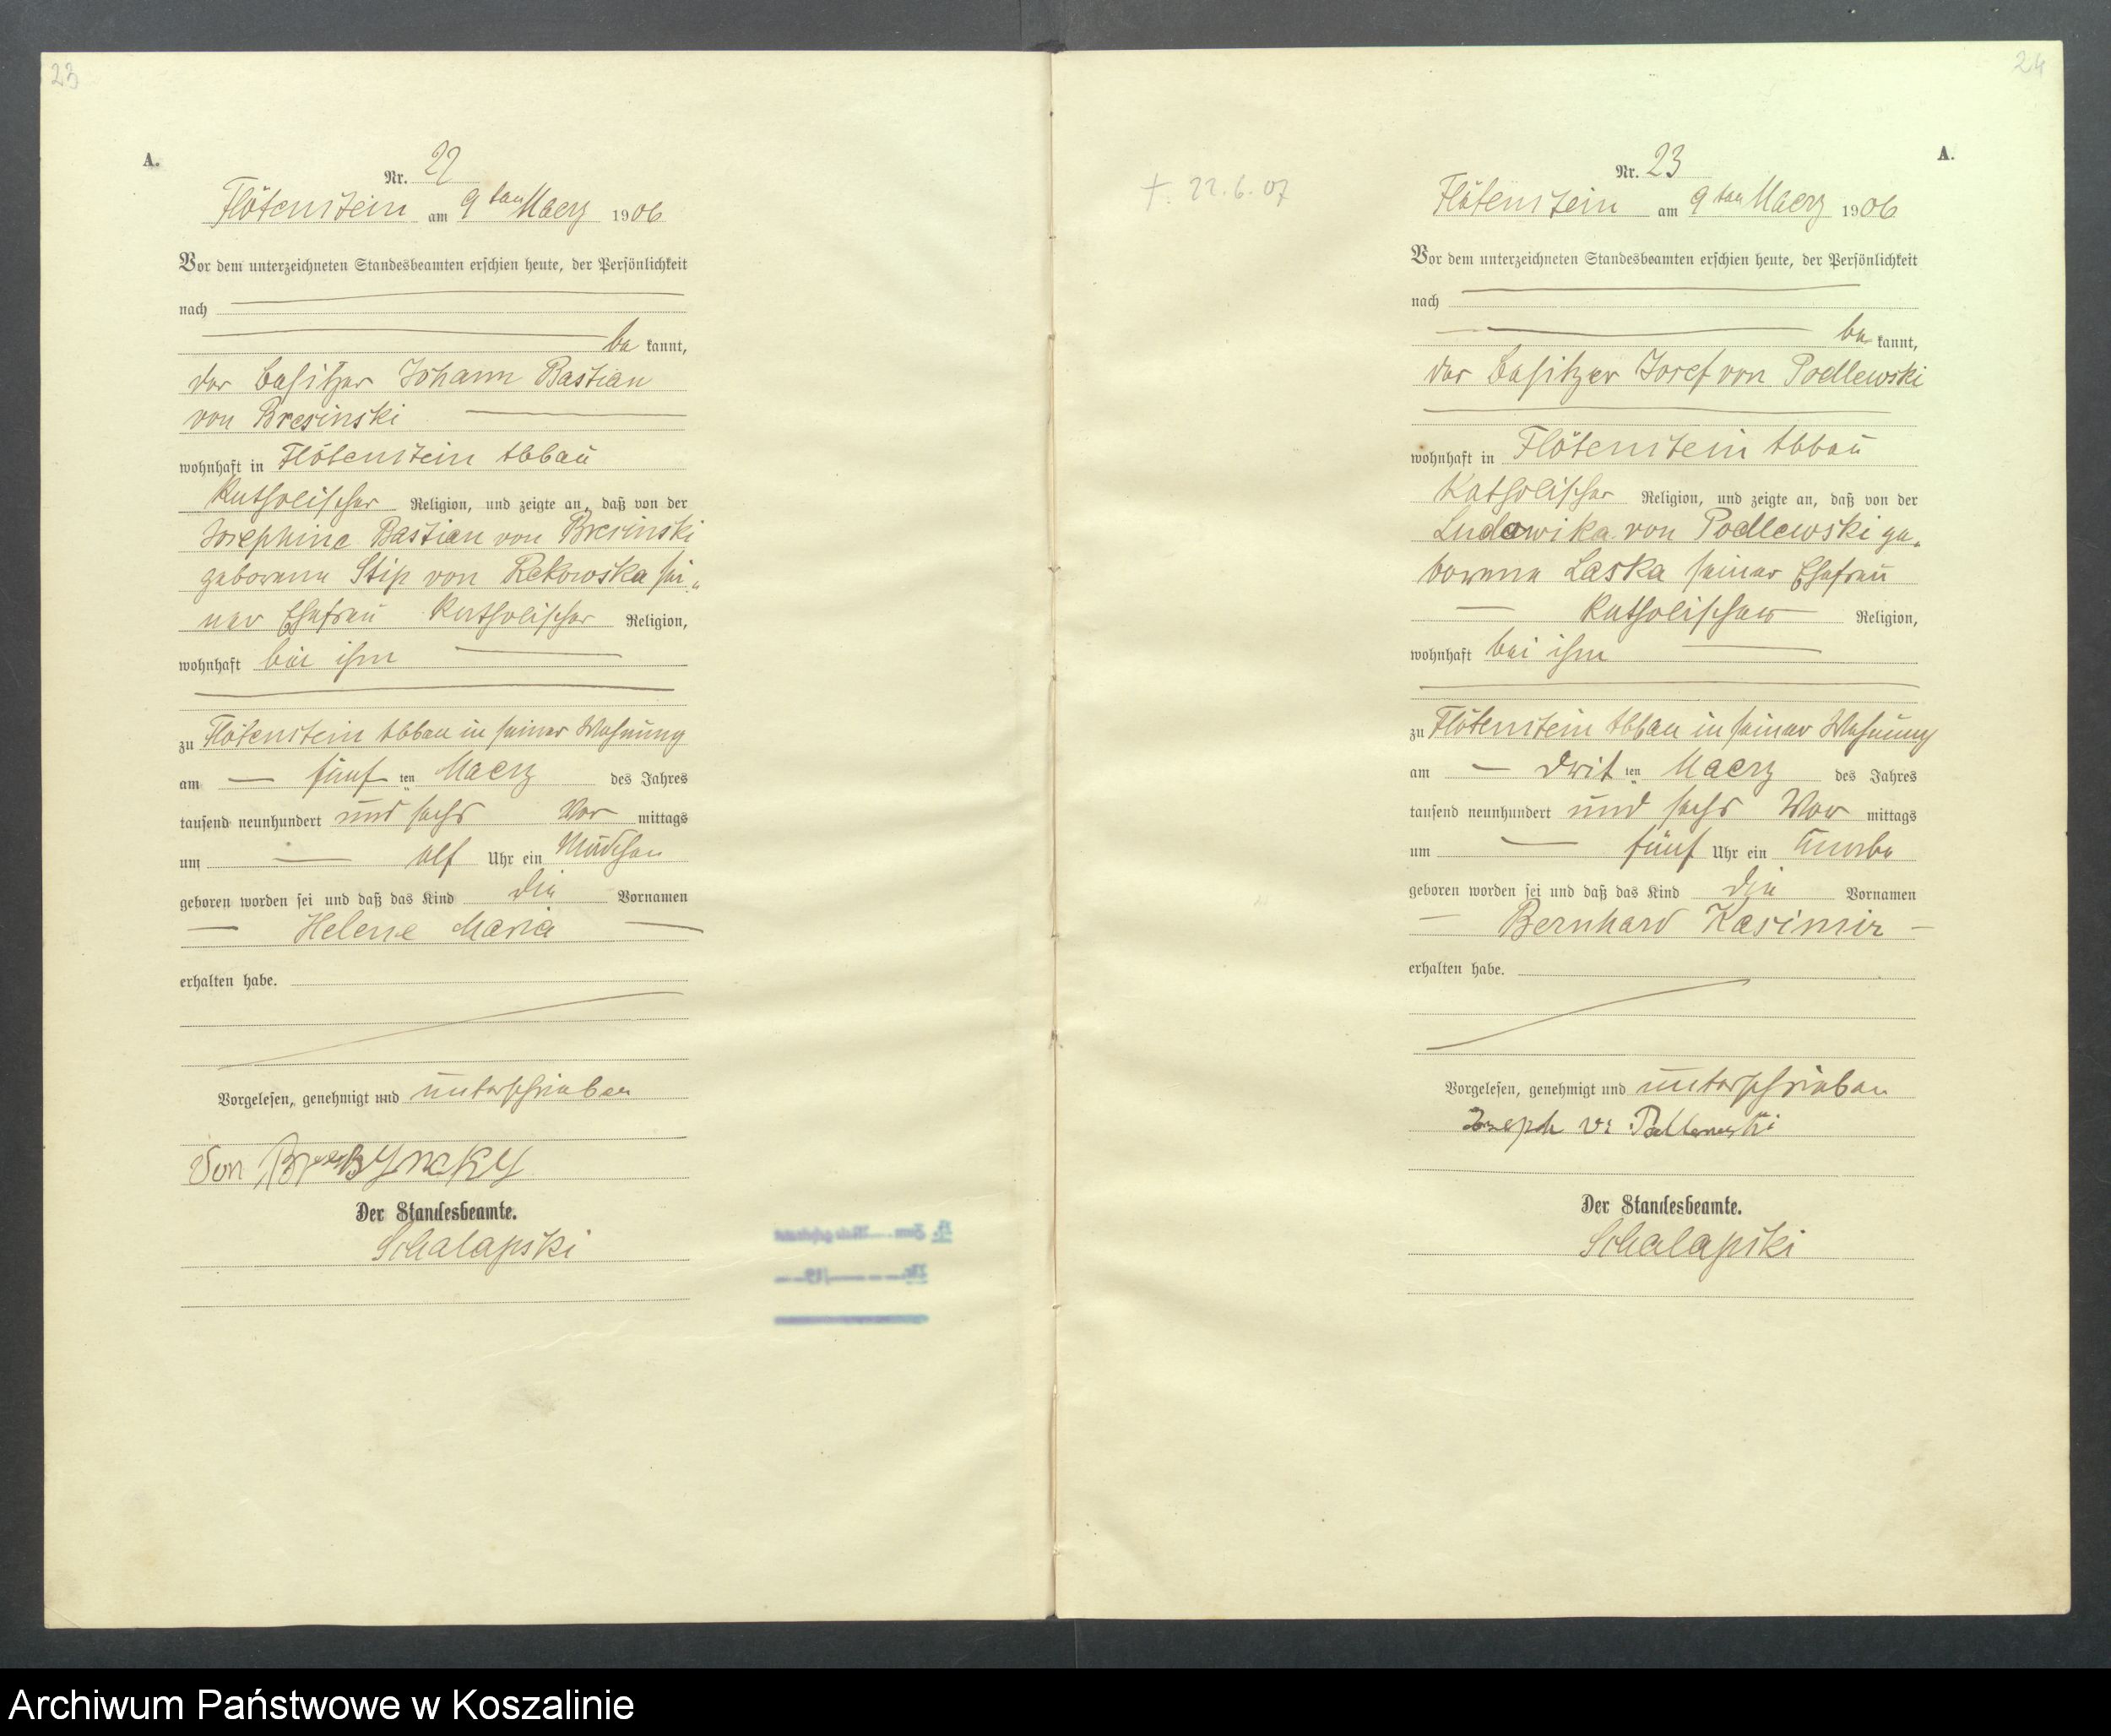 23
A.
Nr. 22
Flötenstein am 9ten Maerz 1906
Vor dem unterzeichneten Standesbeamten erschien heute, der Persönlichkeit
nach
be kannt,
der Besitzer Johann Bastian
von Bresinski
wohnhaft in Flötenstein Abbau
katholischer Religion, und zeigte an, daß von der
Josephine Bastian von Bresinski
geborene Stip von Rekowska sei„
ner Ehefrau katholischer Religion,
wohnhaft bei ihm
zu Flötenstein Abbau in seiner Wohnung
am fünf ten Maerz des Jahres
tausend neunhundert und sechs Vor mittags
um elf Uhr ein Mädchen
geboren worden sei und daß das Kind die Vornamen
Helene Maria
erhalten habe.
Vorgelesen, genehmigt und unterschrieben
Von
Der Standesbeamte.
Schalapski
24
A.
+. 22.6.07
Nr. 23
Flötenstein am 9ten Maerz 1906
Vor dem unterzeichneten Standesbeamten erschien heute, der Persönlichkeit
nach
be kannt,
der Besitzer Josef von Podlewski
wohnhaft in Flötenstein Abbau
katholischer Religion, und zeigte an, daß von der
Ludowika von Podlewski ge„
borene Laska seiner Ehefrau
katholischer Religion,
wohnhaft bei ihm
zu Flötenstein Abbau in seiner Wohnung
am drit ten Maerz des Jahres
tausend neunhundert und sechs Vor mittags
um fünf Uhr ein Knabe
geboren worden sei und daß das Kind die Vornamen
Bernhard Kasimir
erhalten habe.
Vorgelesen, genehmigt und unterschrieben
Joseph v:
Der Standesbeamte.
Schalapski
Archiwum Państwowe w Koszalinie